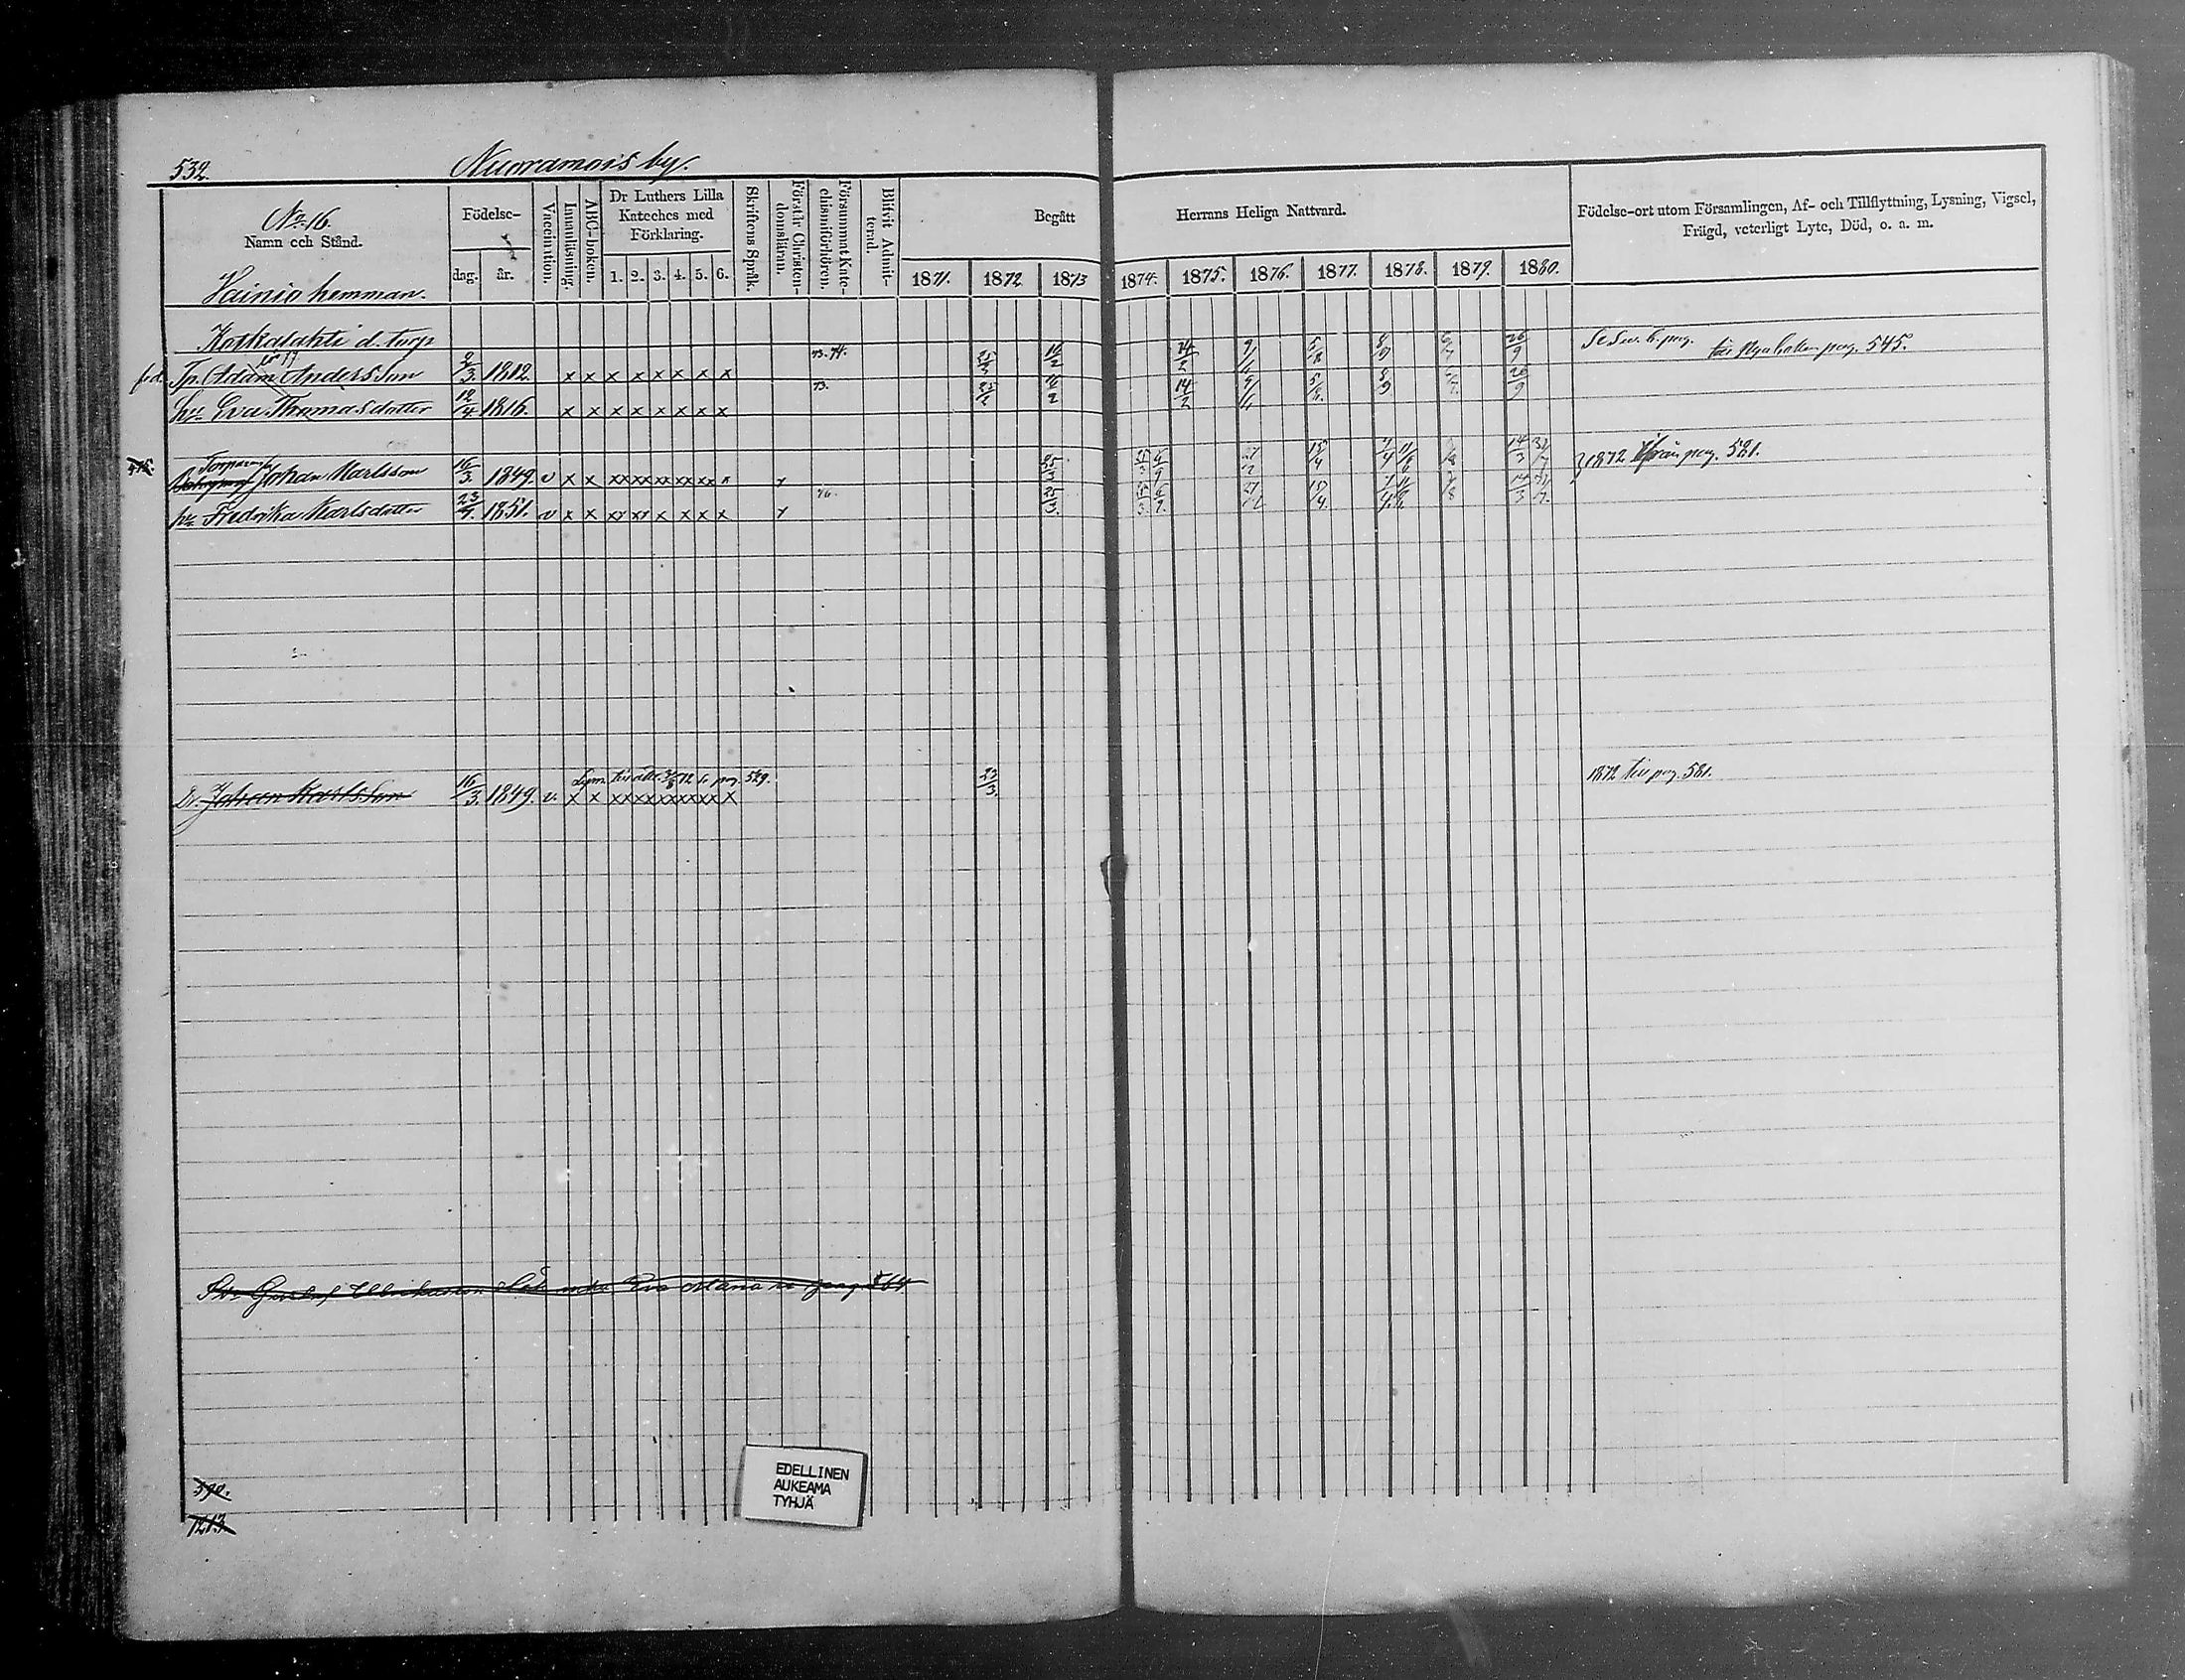 532.
Nuoramois by.
No 16.
Namn och Stånd.
Födelse-
dag.
år.
Vaccination.
Innanläsning.
ABC-boken.
Dr Luthers Lilla
Kateches med
Förklaring.
1. 2. 3. 4. 5. 6.
Skriftens Språk.
Förstår Christen-
domsläran.
Försummat Kate-
chismiförhören.
Blifvit Admit-
terad.
Begått Herrans Heliga Nattvard.
1871. 1872 1873 1874. 1875. 1876. 1877. 1878. 1879. 1880.
Födelse-ort utom Församlingen, Af- och Tillflyttning, Lysning, Vigsel,
Frägd, veterligt Lyte, Död, o. a. m.
Vainio hemman.
Koskalahti d. torp
Tp. Adam Andersson 2/3. 1812. x x x x x x x x 73. 74. 14/2 5/8 8/9 26/9 pag. 545.
hu Eva Thomasdotter 12/4 1816. x x x x x x x x 73. 14/2 5/8 8/9 26/9
Torparen
Johan Karlsson 16/3. 1849. v x x xx xx xx xx xx x 25/3 15/4 14/3 1872 ifrån pag. 581.
hu Fredrika Karlsdotter 23/9. 1851. v x x xx xx x x x x 76. 25/3. 15/4. 14/3
Lysn. pag. 529.
Dr. Johan Karlsson 16/3. 1849. v. x x xx xx xx xx xx x 23/3. 1872 till pag. 581.
Gustaf Eva pag. 564
590.
1213
EDELLINEN
AUKEAMA
TYHJÄ